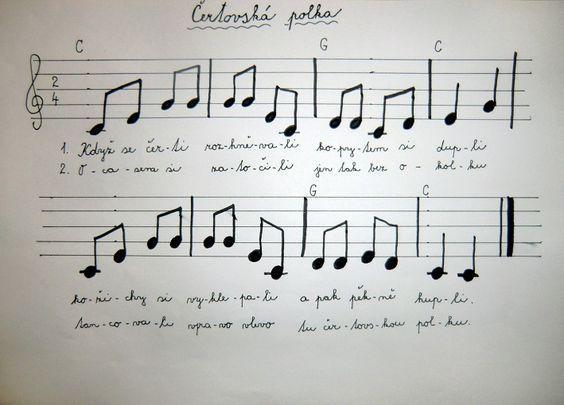 Čertovská polka
C G C
2
4
1. Když se čer-ti roz-hně-va-li ko-py-tem si dup-li
2. O-ca-sem si za-to-či-li jen tak bez o-kol-ku
G C
ko-ži-chy si vy-kle-pa-li a pak pěk-ně kup-li.
tan-co-va-li vpra-vo vlevo tu čer-tovs-kou pol-ku.